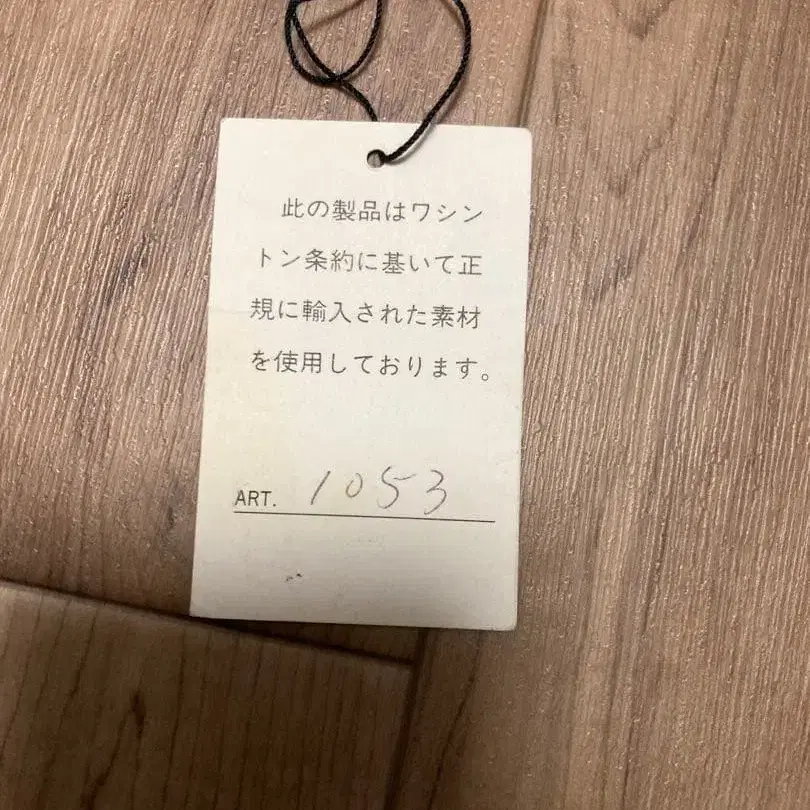 此の製品はワシン
トン条約に基いて正
規に輸入された素材
を使用しております。
ART. 1053